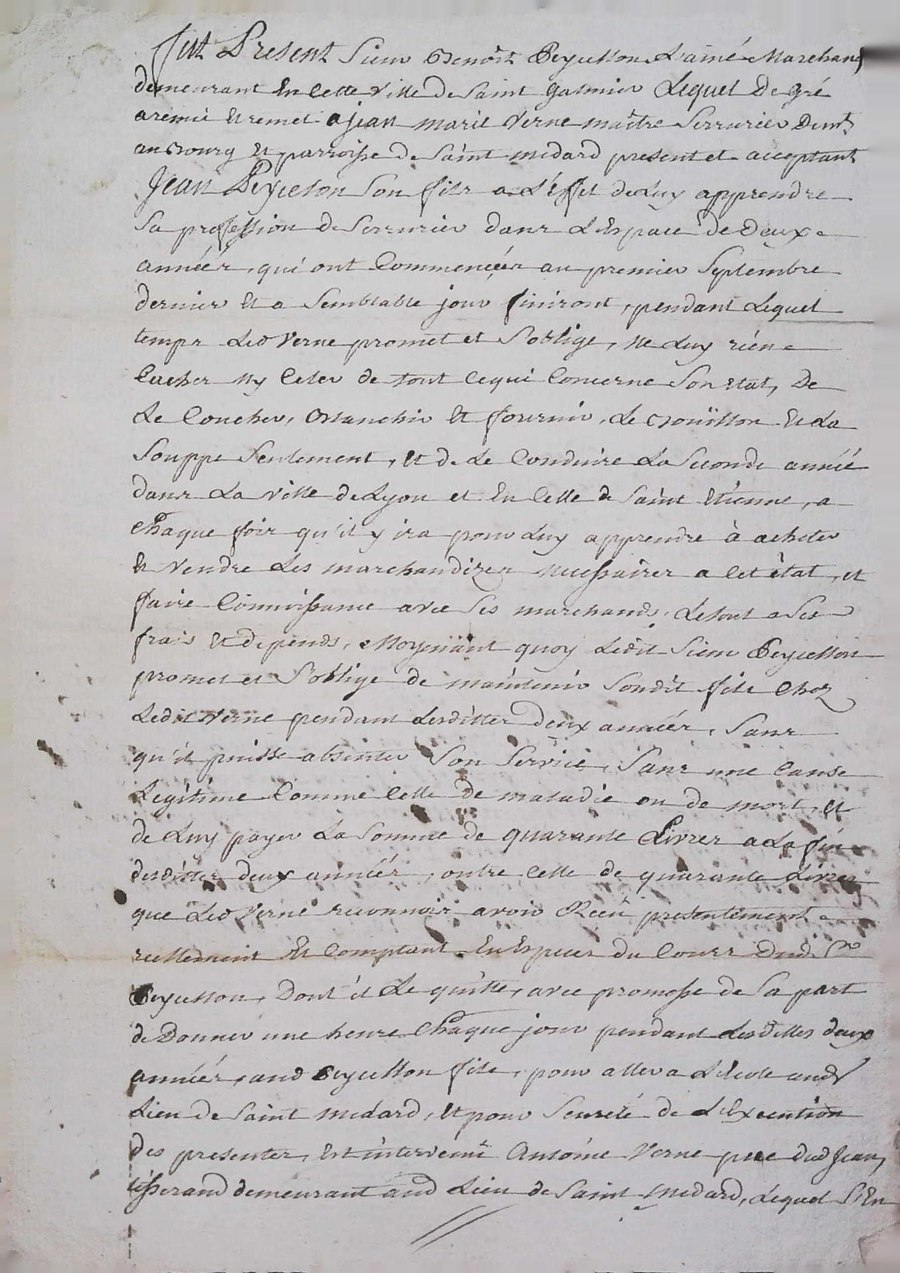 Fut Present Sieur Benoît Peyusson L'aîné Marchand
demeurant En Cette ville de Saint Galmier Lequel De gré
a remis Et remet a jean marie Verne maître Serrurier Demt
au Bourg Et parroisse de Saint medard present et acceptant
Jean Peyusson Son fils a L'éffet de Luy apprendre
Sa profession de Serrurier dans L'Espace de Deux
années, qui ont Commencées au premier Septembre
dernier Et a Semblable jour finiront, pendant Lequel
temps Led Verne promet et S'oblige, Ne Luy rién
Cacher Ny Celer de tout Cequi Concerne Son Etat, De
Le Coucher, Blanchir Et fournir, Le Boüillon Et La
Souppe Seulement, Et de Le Conduire La Seconde année
dans La ville de Lyon et En Celle de Saint Etienne, a
Chaque fois qu'il y ira pour Luy apprendre à acheter
Et Vendre Les marchandizes Necessaires a Cet état, et
faire Connoissance avec Ses marchands, Le tout a Ses
frais Et depends, Moyenant quoy Ledit Sieur Peyusson
promet et S'oblige de maintenir Sondit fils Chez
Ledit Verne pendant Lesdittes deux années, Sans
qu'il puisse absenter Son Service, Sans une Cause
Legitime Comme Celle de maladie ou de mort, Et
de Luy payer La Somme de quarante Livres a La fin
desdittes deux années, outre Celle de quarante Livres
que Led Verne reconnoir avoir Receu presentement
reellement Et Comptant En Especes du Cours Dud. Sr
Peyusson, Dont il Le quitte, avec promesse de Sa part
de Donner une heure Chaque jour pendant Lesdittes deux
années, aud Peyusson fils, pour aller a L'école aud
Lieu de Saint medard, Et pour Seureté de L'Execution
des presentes, Est intervenü Antoine Verne pere dud Jean,
tisserand demeurant aud Lieu de Saint Medard, Lequel S'En